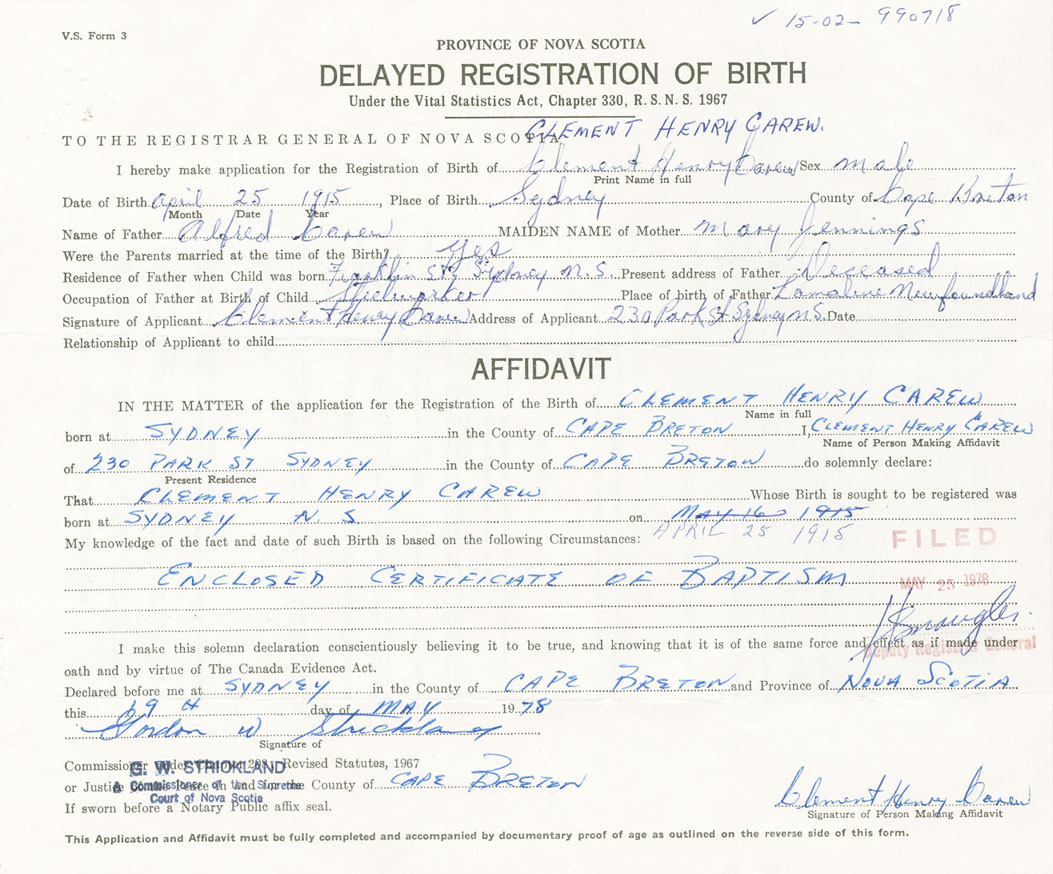 ✓ 15-02- 990718
V.S. Form 3
PROVINCE OF NOVA SCOTIA
DELAYED REGISTRATION OF BIRTH
Under the Vital Statistics Act, Chapter 330, R.S.N.S. 1967
CLEMENT HENRY CAREW.
TO THE REGISTRAR GENERAL OF NOVA SCOTIA
I hereby make application for the Registration of Birth of Clement Henry Carew Sex male
Print Name in full
Date of Birth april 25 1915, Place of Birth Sydney County of Cape Breton
Month Date Year
Name of Father Alfred Carew MAIDEN NAME of Mother Mary Jennings
Were the Parents married at the time of the Birth? Yes
Residence of Father when Child was born Franklin St, Sydney N.S. Present address of Father Deceased
Occupation of Father at Birth of Child Steelworker Place of birth of Father Lamaline Newfoundland
Signature of Applicant Clement Henry Carew Address of Applicant 230 Park St Sydney NS. Date
Relationship of Applicant to child
AFFIDAVIT
IN THE MATTER of the application for the Registration of the Birth of CLEMENT HENRY CAREW
Name in full
born at SYDNEY in the County of CAPE BRETON I, CLEMENT HENRY CAREW
Name of Person Making Affidavit
of 230 PARK ST SYDNEY in the County of CAPE BRETON do solemnly declare:
Present Residence
That CLEMENT HENRY CAREW Whose Birth is sought to be registered was
born at SYDNEY N. S on MAY 16 1915
APRIL 25 1915
My knowledge of the fact and date of such Birth is based on the following Circumstances:
FILED
ENCLOSED CERTIFICATE OF BAPTISM
MAY 23 1978
I make this solemn declaration conscientiously believing it to be true, and knowing that it is of the same force and effect as if made under
Deputy Registrar General
oath and by virtue of The Canada Evidence Act.
Declared before me at SYDNEY in the County of CAPE BRETON and Province of NOVA SCOTIA
this 19 day of MAY 1978
Gordon W Strickland
Signature of
Commissioner under Chapter Revised Statutes, 1967
G. W. STRICKLAND
or Justice of the Peace in and for the County of CAPE BRETON
A Commissioner of the Supreme
Court of Nova Scotia
If sworn before a Notary Public affix seal.
Clement Henry Carew
Signature of Person Making Affidavit
This Application and Affidavit must be fully completed and accompanied by documentary proof of age as outlined on the reverse side of this form.